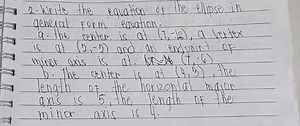 2. Write the equation of the ellipse in
general form equation.
a. the center is at (7,-2), a vertex
is at (2,-2) and an endpoint of
minor axis is at. (7,-6)
b. The center is at (4,5), the
length of the horizontal major
axis is 5, the length of the
minor axis is 4.